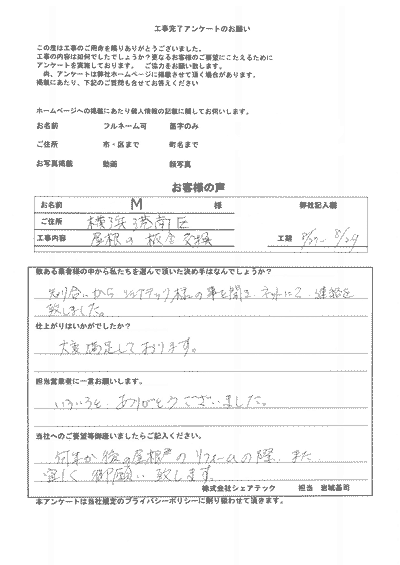 工事完了アンケートのお願い
この度は工事のご用命を賜りありがとうございました。
工事の内容は如何でしたでしょうか？更なるお客様のご要望にこたえるために
アンケートを実施しております。 ご協力をお願い致します。
尚、アンケートは弊社ホームページに掲載させて頂く場合があります。
掲載にあたり、下記のご質問も合せてお答えください
ホームページへの掲載にあたり個人情報の記載に関してお伺いします。
お名前 フルネーム可 苗字のみ
ご住所 市・区まで 町名まで
お写真掲載 動画 顔写真
お客様の声
お名前 M 様 弊社記入欄
ご住所 横浜港南区
工事内容 屋根の板金交換 工期 8/27～8/29
数ある業者様の中から私たちを選んで頂いた決め手はなんでしょうか？
知り合いから シェアテック様の事を聞き ネットにて 連絡を
致しました。
仕上がりはいかがでしたか？
大変満足しております。
担当営業者に一言お願いします。
いろいろと、ありがとうございました。
当社へのご要望等御座いましたらご記入ください。
何年か後の屋根のリフォームの際、また
宜しく御願い致します。
株式会社シェアテック 担当 岩城基司
本アンケートは当社規定のプライバシーポリシーに則り扱わせて頂きます。